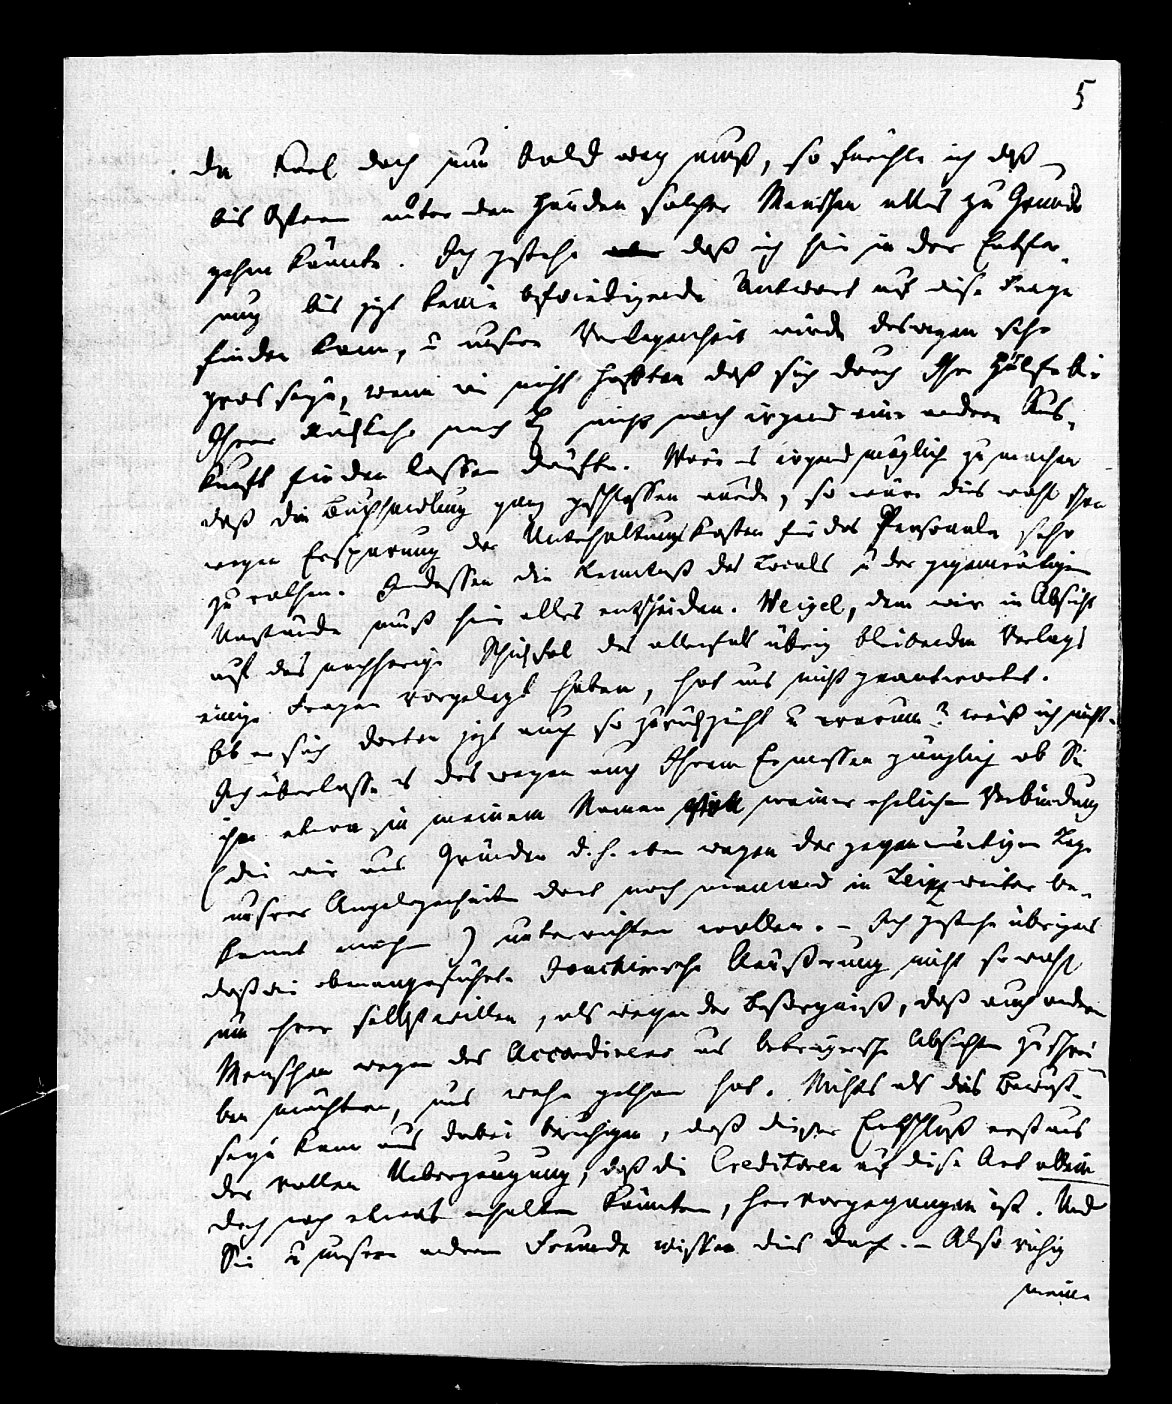 5
da Karl doch nun bald weg muß, so fürchte ich daß
bis Ostern unter den Händen solcher Menschen alles zu Grunde
gehen könnte. Ich gestehe daß ich hier in der Entfer-
nung bis jezt keine befriedigende Antwort auf diese Frage
finden kann, u unsre Verlegenheit würde deswegen sehr
gros seyn, wenn wir nicht hofften daß sich durch Ihre Hülfe bei
Ihrer Rückkehr nach Lz nicht noch irgend eine andere Aus-
kunft finden lassen dürfte. Wäre es irgend möglich zu machen
daß die Buchhandlung ganz geschlossen würde, so wäre dies wohl schon
wegen Ersparung der Unterhaltungskosten für das Personale sehr
zu rathen. Indessen die Kenntniß des Locals u der gegenwärtigen
Umstände muß hier alles entscheiden. Weigel, dem wir in Absicht
auf das nachherige Schicksal des allenfals übrig bleibenden Verlags
einige Fragen vorgelegt haben, hat uns nicht geantwortet.
Ob er sich dorten jezt auch so zurückzieht u warum? weiß ich nicht.
Ich überlasse es deswegen auch Ihrem Ermessen gänzlich ob Sie
ihn etwa in meinem Namen von meiner ehelichen Verbindung
(die wir aus Gründen d.h. eben wegen der gegenwärtigen Lage
unsrer Angelegenheiten dort noch niemand in Leipz weiter be-
kannt machen) unterrichten wollen. – Ich gestehe übrigens
daß die obenangeführte Äußerung nicht sowohl
um ihrer selbst willen, als wegen der Besorgniß, daß auch andere
Menschen wegen des Accordirens uns betrügerische Absichten zuschrei-
ben möchten, uns wehe gethan hat. Nichts als das Bewußt-
seyn kann uns dabei beruhigen, daß dieser Entschluß erst aus
der vollen Ueberzeugung, daß die Creditoren auf diese Art allein
doch noch etwas erhalten könnten, hervorgegangen ist. Und
Sie u unsere andern Freunde wissen dies doch. – Also ruhig
meine